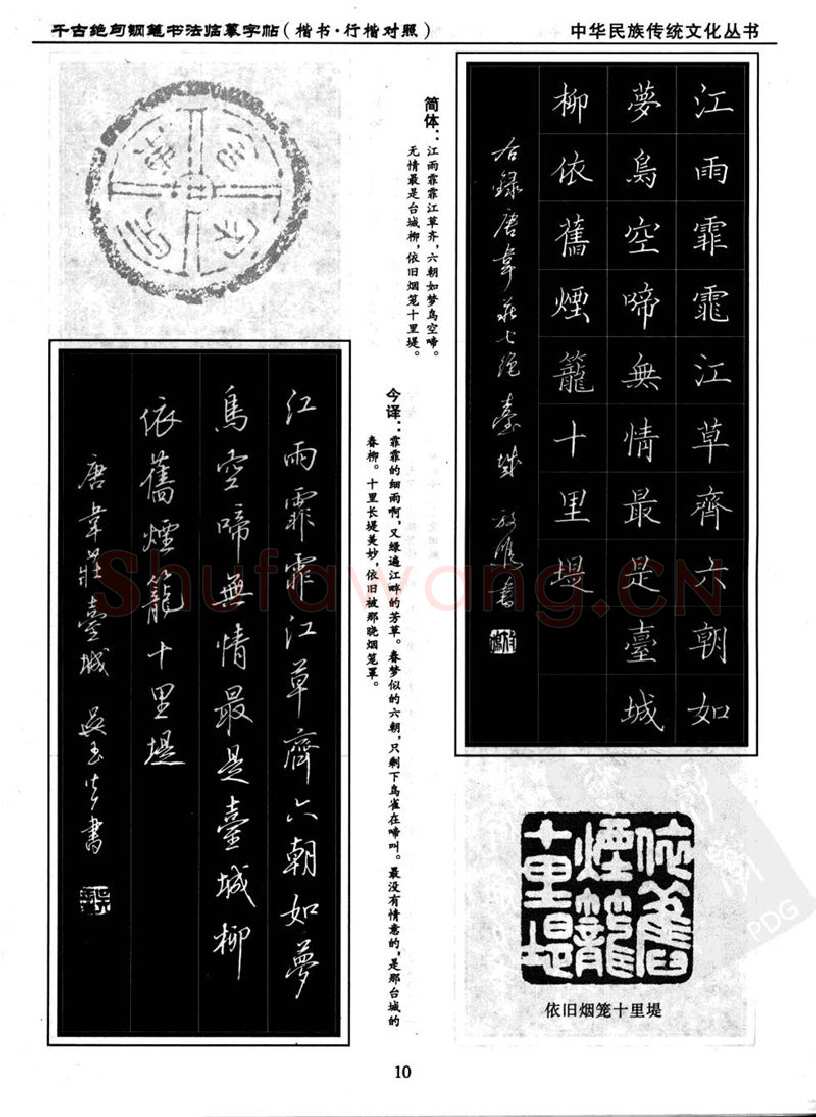 千古绝句钢笔书法临摹字帖（楷书·行楷对照）
中华民族传统文化丛书
江雨霏霏江草齊六朝如
夢鳥空啼無情最是臺城
柳依舊煙籠十里堤
右錄唐韋莊七絕臺城 書
简体：江雨霏霏江草齐，六朝如梦鸟空啼。
无情最是台城柳，依旧烟笼十里堤。
今译：霏霏的细雨啊，又绿遍江畔的芳草。春梦似的六朝，只剩下鸟雀在啼叫。最没有情意的，是那台城的
春柳。十里长堤美妙，依旧被那晓烟笼罩。
江雨霏霏江草齊六朝如夢
鳥空啼無情最是臺城柳
依舊煙籠十里堤
唐韋莊臺城 吳玉生書
依舊
煙籠
十里堤
依旧烟笼十里堤
10
Shufawang.CN
PDG